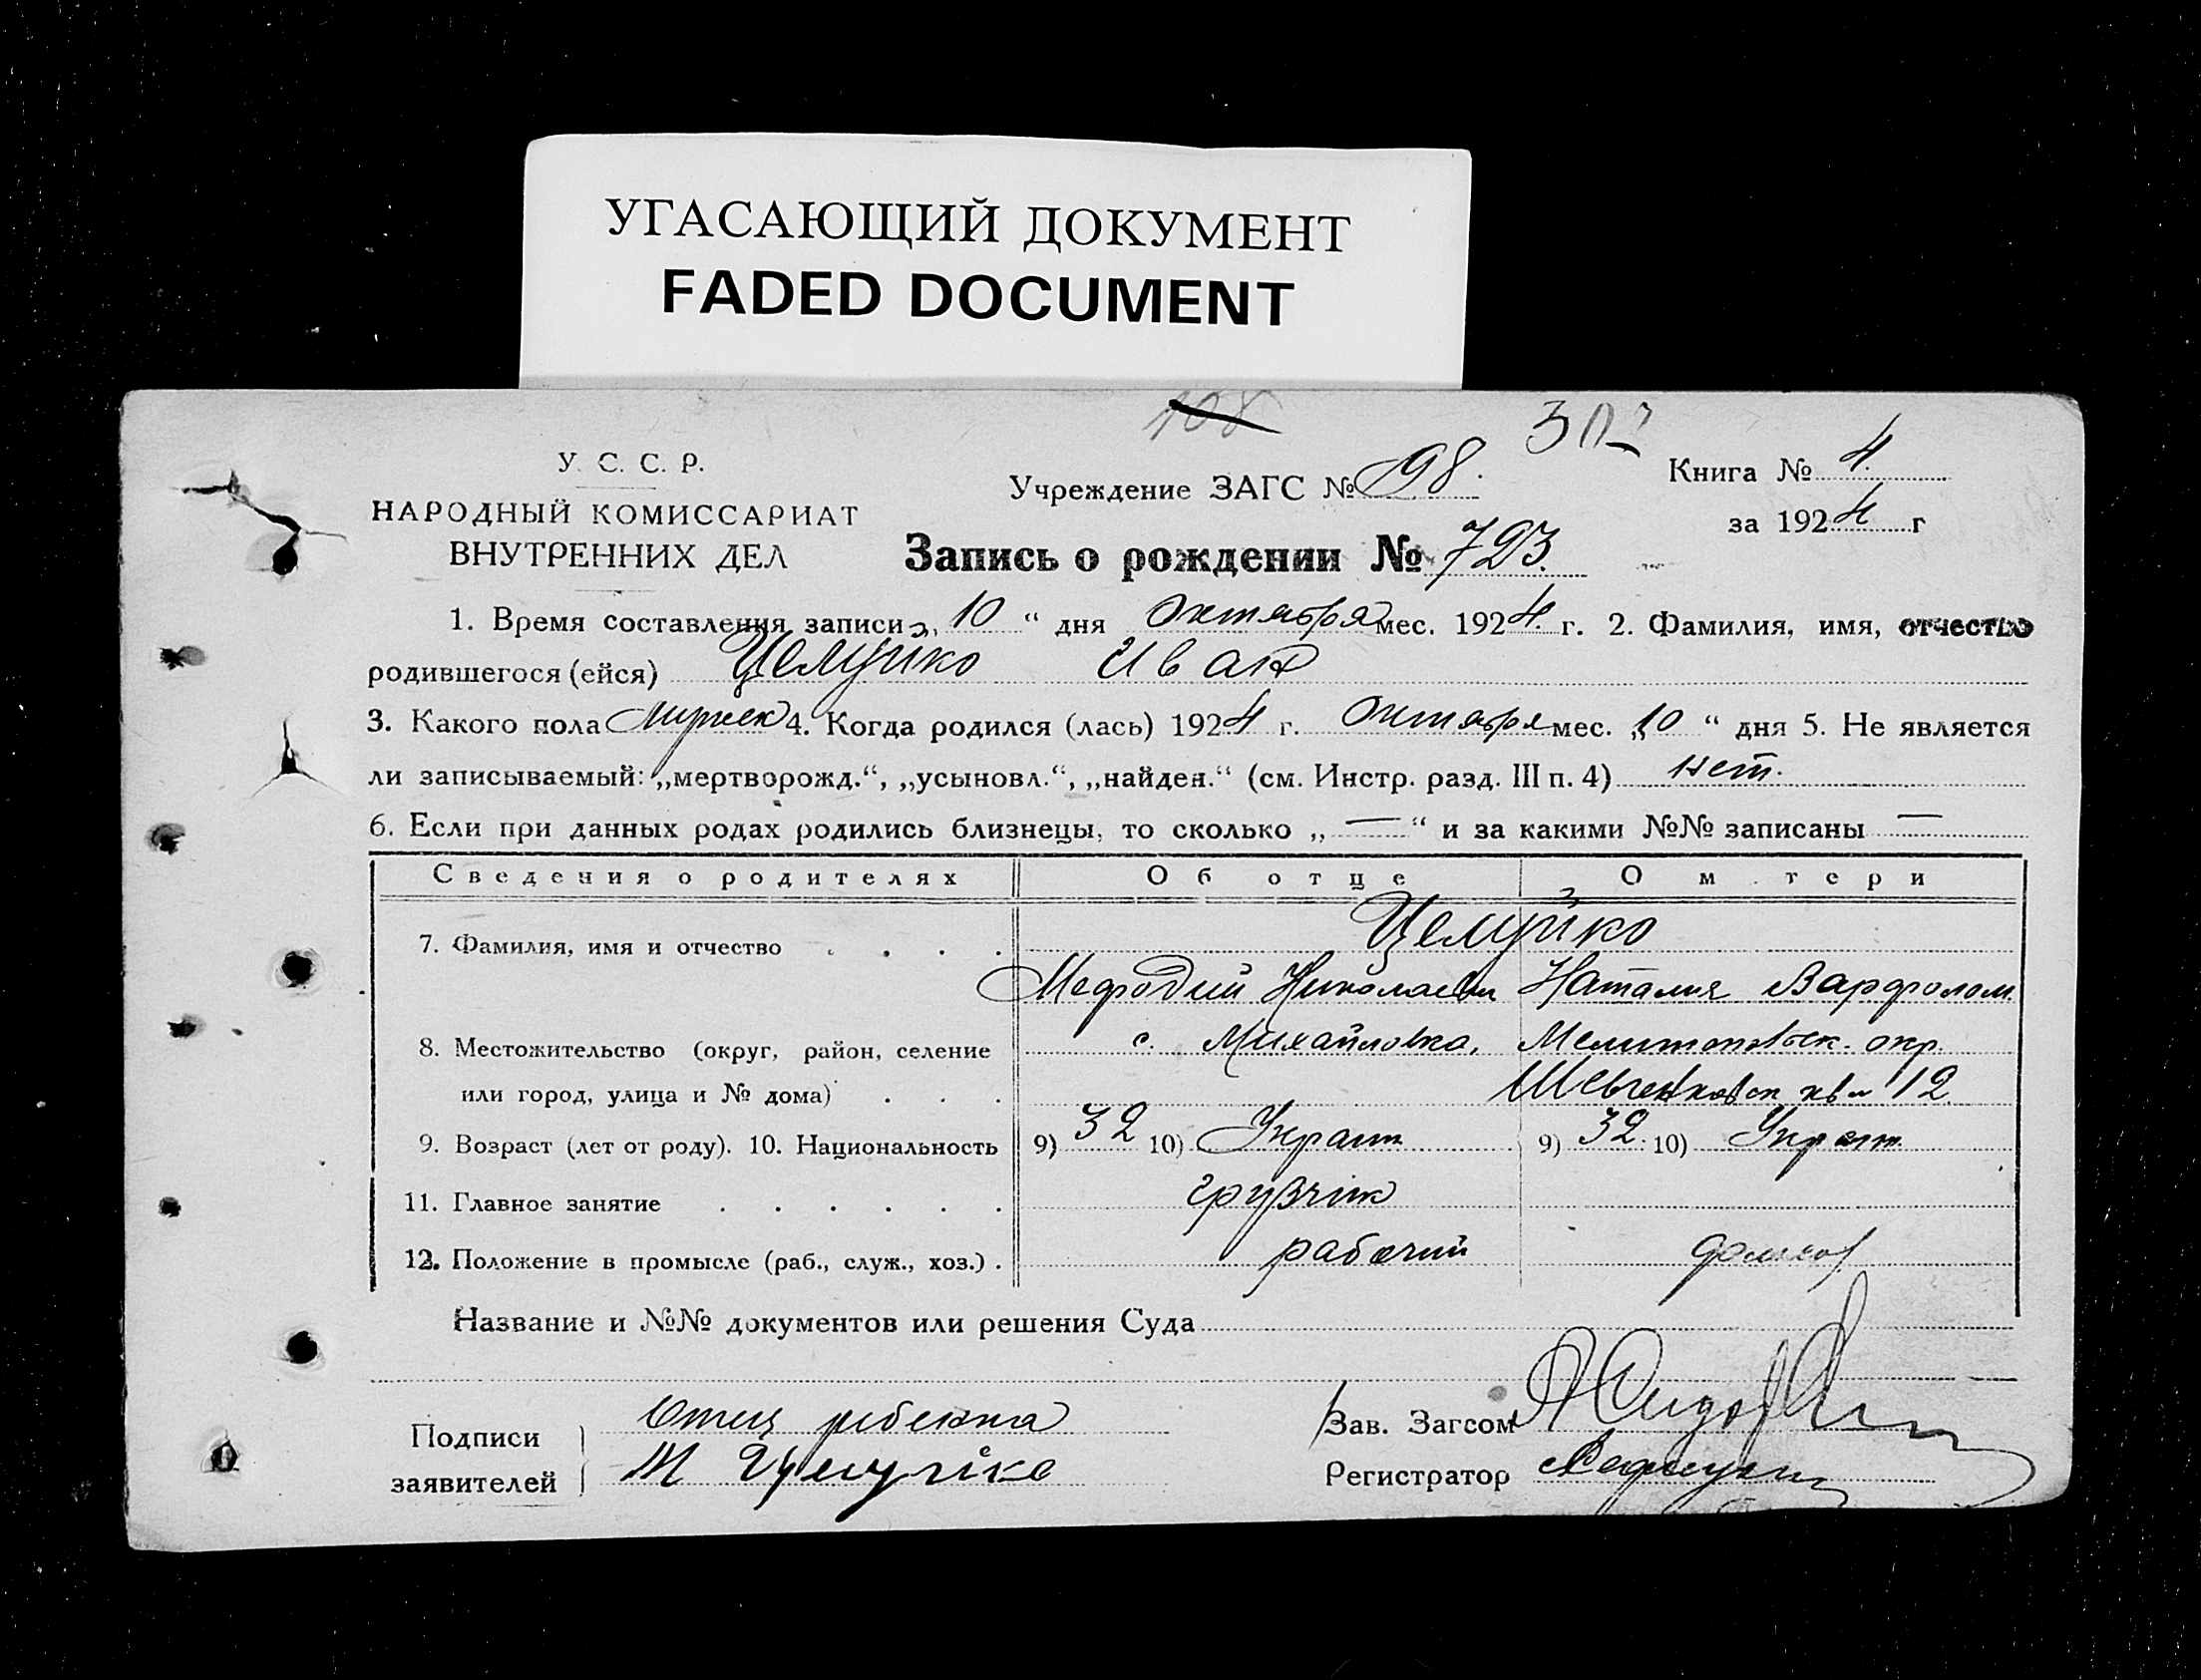 УГАСАЮЩИЙ ДОКУМЕНТ
FADED DOCUMENT
108
У. С. С. Р.
НАРОДНЫЙ КОМИССАРИАТ
ВНУТРЕННИХ ДЕЛ
Учреждение ЗАГС № 198.
Книга № 4.
за 1924 г
Запись о рождении № 723.
1. Время составления записи „10“ дня Октября мес. 1924. г. 2. Фамилия, имя, отчество
родившегося (ейся) Целуйко Иван
3. Какого пола Мужск 4. Когда родился (лась) 1924 г. Октября мес. „10“ дня 5. Не является
ли записываемый: „мертворожд.“, „усыновл.“, „найден.“ (см. Инстр. разд. III п. 4) нет.
6. Если при данных родах родились близнецы, то сколько „ — “ и за какими №№ записаны —
Сведения о родителях Об отце О м тери
7. Фамилия, имя и отчество Целуйко
Мефодий Николаевич Наталия Варфолом.
8. Местожительство (округ, район, селение с. Михайловка, Мелитопольск. окр.
или город, улица и № дома) Шевченковск кв 12.
9. Возраст (лет от роду). 10. Национальность 9) 32 10) Украин 9) 32. 10) Украин.
11. Главное занятие грузчик
12. Положение в промысле (раб., служ., хоз.) рабочий домхоз
Название и №№ документов или решения Суда
Подписи Отец ребенка
заявителей М Целуйко
Зав. Загсом
Регистратор